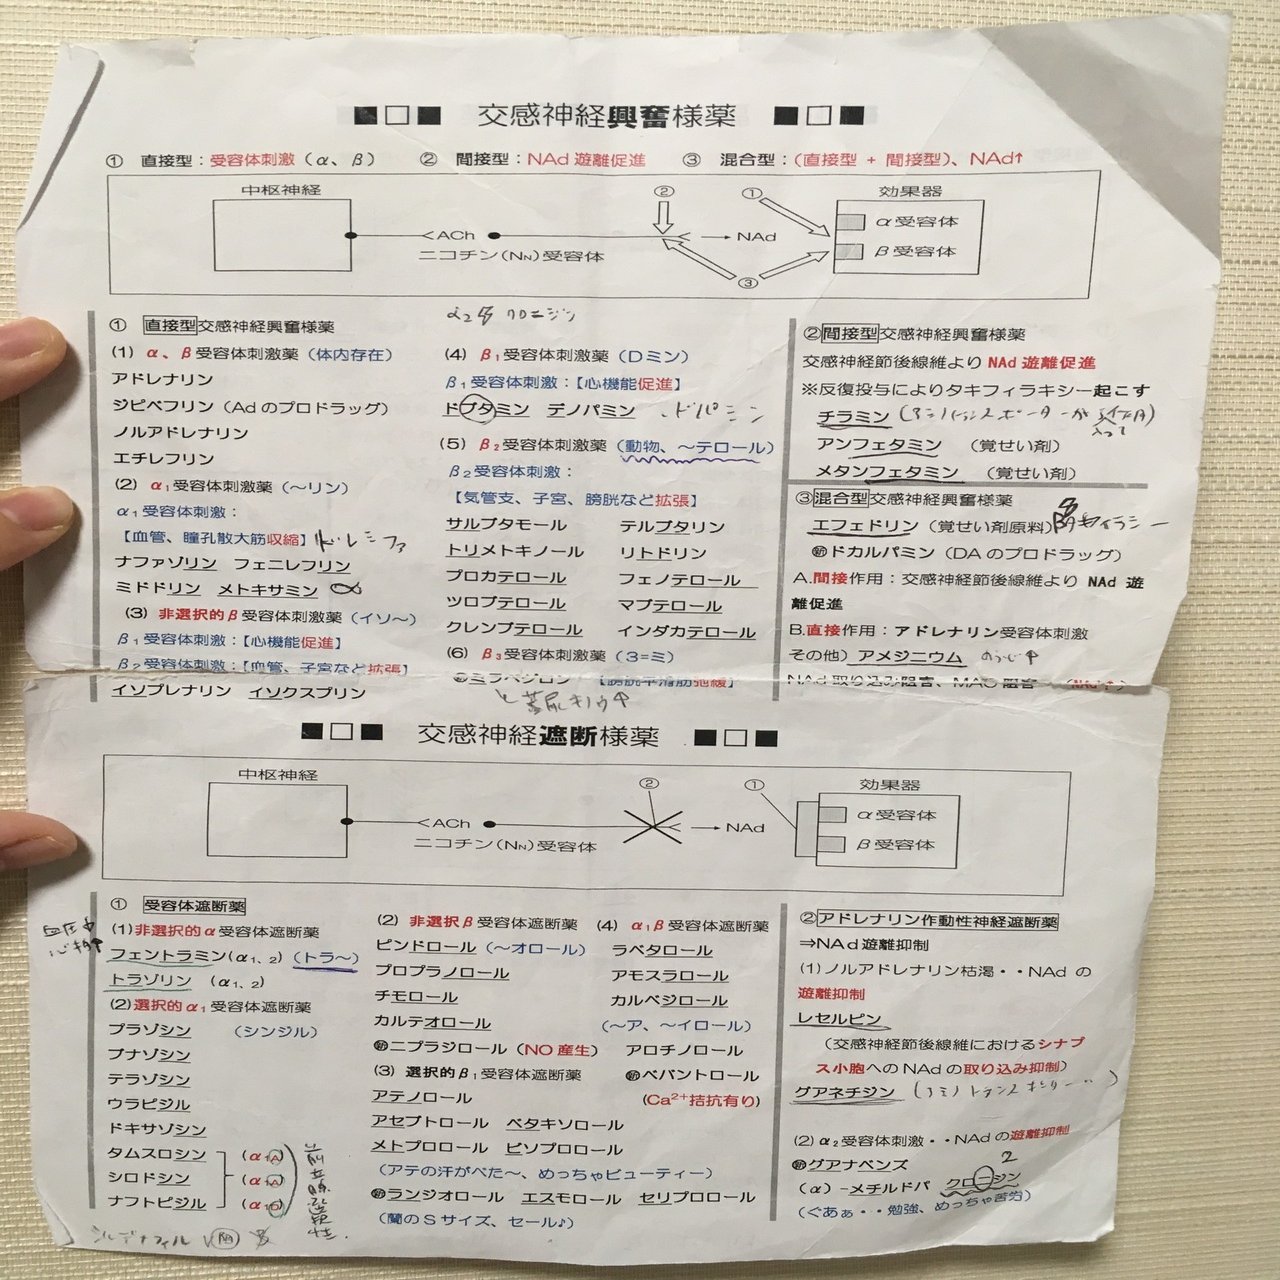 ■□■ 交感神経興奮様薬 ■□■
① 直接型：受容体刺激（α、β） ② 間接型：NAd 遊離促進 ③ 混合型：（直接型 + 間接型）、NAd↑
中枢神経
② ① 効果器
ACh NAd α受容体
ニコチン（NN）受容体 β受容体
③
α2 クロニジン
① 直接型交感神経興奮様薬
(1) α、β受容体刺激薬（体内存在）
アドレナリン
ジピベフリン（Adのプロドラッグ）
ノルアドレナリン
エチレフリン
(2) α₁受容体刺激薬（～リン）
α₁受容体刺激：
【血管、瞳孔散大筋収縮】
ナファゾリン フェニレフリン
ミドドリン メトキサミン α
(3) 非選択的β受容体刺激薬（イソ～）
β₁受容体刺激：【心機能促進】
β₂受容体刺激：【血管、子宮など拡張】
イソプレナリン イソクスプリン
(4) β₁受容体刺激薬（Dミン）
β₁受容体刺激：【心機能促進】
ドブタミン デノパミン ドパミン
(5) β₂受容体刺激薬（動物、～テロール）
β₂受容体刺激：
【気管支、子宮、膀胱など拡張】
サルブタモール テルブタリン
トリメトキノール リトドリン
プロカテロール フェノテロール
ツロブテロール マブテロール
クレンブテロール インダカテロール
(6) β₃受容体刺激薬（3=ミ）
㊟ミラベグロン 【膀胱平滑筋弛緩】
②間接型交感神経興奮様薬
交感神経節後線維より NAd 遊離促進
※反復投与によりタキフィラキシー起こす
チラミン
アンフェタミン （覚せい剤）
メタンフェタミン （覚せい剤）
③混合型交感神経興奮様薬
エフェドリン（覚せい剤原料）
㊟ドカルパミン（DAのプロドラッグ）
A.間接作用：交感神経節後線維より NAd 遊
離促進
B.直接作用：アドレナリン受容体刺激
その他）アメジニウム
NAd 取り込み阻害、MAO 阻害 （NAd↑）
■□■ 交感神経遮断様薬 ■□■
中枢神経
② ① 効果器
ACh NAd α受容体
ニコチン（NN）受容体 β受容体
① 受容体遮断薬
(1)非選択的α受容体遮断薬
フェントラミン（α₁、₂）（トラ～）
トラゾリン （α₁、₂）
(2)選択的α₁受容体遮断薬
プラゾシン （シンジル）
ブナゾシン
テラゾシン
ウラピジル
ドキサゾシン
タムスロシン （α1A）
シロドシン （α1A）
ナフトピジル （α1D）
前立腺選択性
シルデナフィル
(2) 非選択β受容体遮断薬
ピンドロール（～オロール）
プロプラノロール
チモロール
カルテオロール
㊟ニプラジロール（NO 産生）
(3) 選択的β₁受容体遮断薬
アテノロール
アセブトロール ベタキソロール
メトプロロール ビソプロロール
（アテの汗がべた～、めっちゃビューティー）
㊟ランジオロール エスモロール セリプロロール
（蘭のSサイズ、セール♪）
(4) α₁β受容体遮断薬
ラベタロール
アモスラロール
カルベジロール
（～ア、～イロール）
アロチノロール
㊟ベバントロール
（Ca²⁺拮抗有り）
②アドレナリン作動性神経遮断薬
⇒NAd 遊離抑制
(1)ノルアドレナリン枯渇・・NAd の
遊離抑制
レセルピン
（交感神経節後線維におけるシナプ
ス小胞へのNAdの取り込み抑制）
グアネチジン
(2) α₂受容体刺激・・NAdの遊離抑制
㊟グアナベンズ 2
（α）-メチルドパ クロニジン
（ぐあぁ・・勉強、めっちゃ苦労）